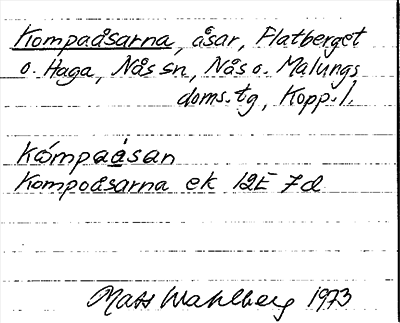 Kompaåsarna, åsar, Flatberget
o. Haga, Nås sn, Nås o. Malungs
doms.tg, Kopp. l.
kómpaåsan
Kompoåsarna ek 12E 7d
Mats Wahlberg 1973